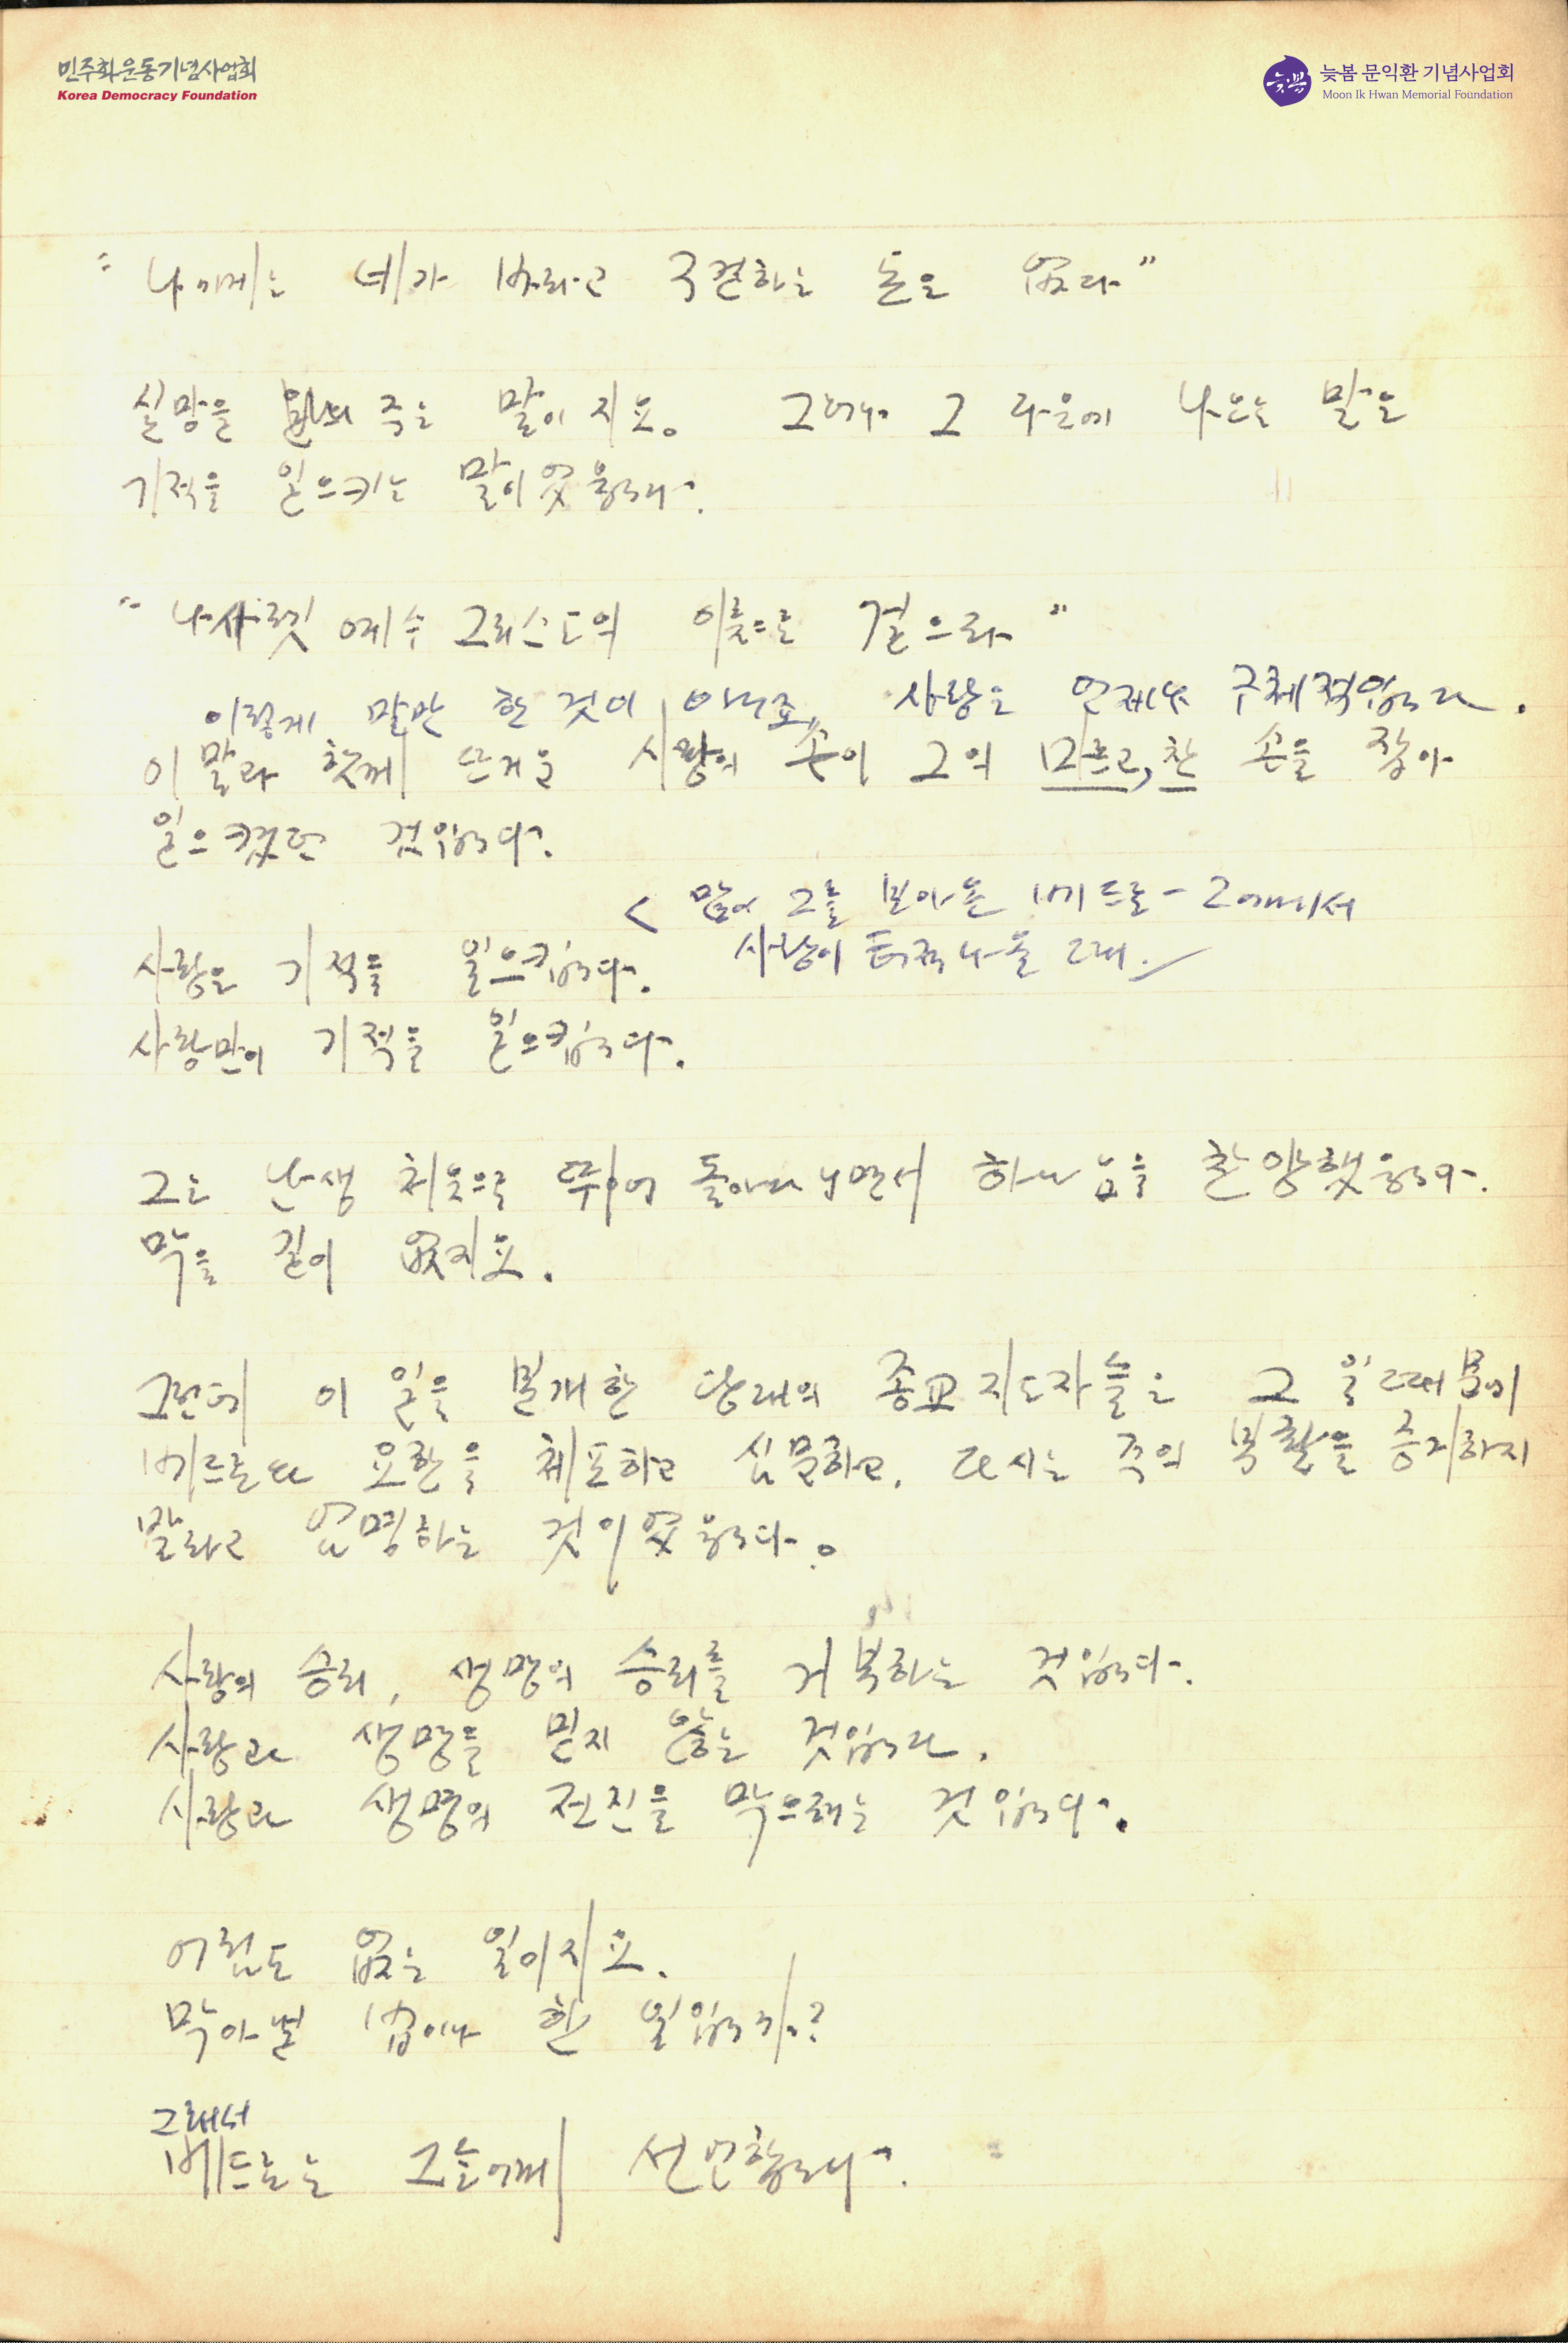 민주화운동기념사업회
Korea Democracy Foundation
늦봄 문익환 기념사업회
Moon Ik Hwan Memorial Foundation
"나에게는 네가 바라고 구걸하는 돈은 없다"
실망을 주는 말이지요. 그러나 그 다음에 나오는 말은
기적을 일으키는 말이었읍니다.
"나사렛 예수 그리스도의 이름으로 걸으라"
이렇게 말만 한 것이 아니죠. 사랑은 언제나 구체적입니다.
이 말과 함께 뜨거운 사랑의 손이 그의 마르고, 찬 손을 잡아
일으켰던 것입니다.
< 많이 그를 보아온 베드로 - 그에게서
사랑이 터져나올 때.
사랑은 기적을 일으킵니다.
사랑만이 기적을 일으킵니다.
그는 난생 처음으로 뛰어 돌아다니면서 하나님을 찬양했읍니다.
막을 길이 없지요.
그런데 이 일을 본 당대의 종교지도자들은 그 일 때문에
베드로와 요한을 체포하고 심문하고, 다시는 주의 부활을 증거하지
말라고 엄명하는 것이었읍니다.
사랑의 승리, 생명의 승리를 거부하는 것입니다.
사랑과 생명을 믿지 않는 것입니다.
사랑과 생명의 전진을 막으려는 것입니다.
어림도 없는 일이지요.
막아낼 법이나 한 일입니까?
그래서
베드로는 그들에게 선언합니다.